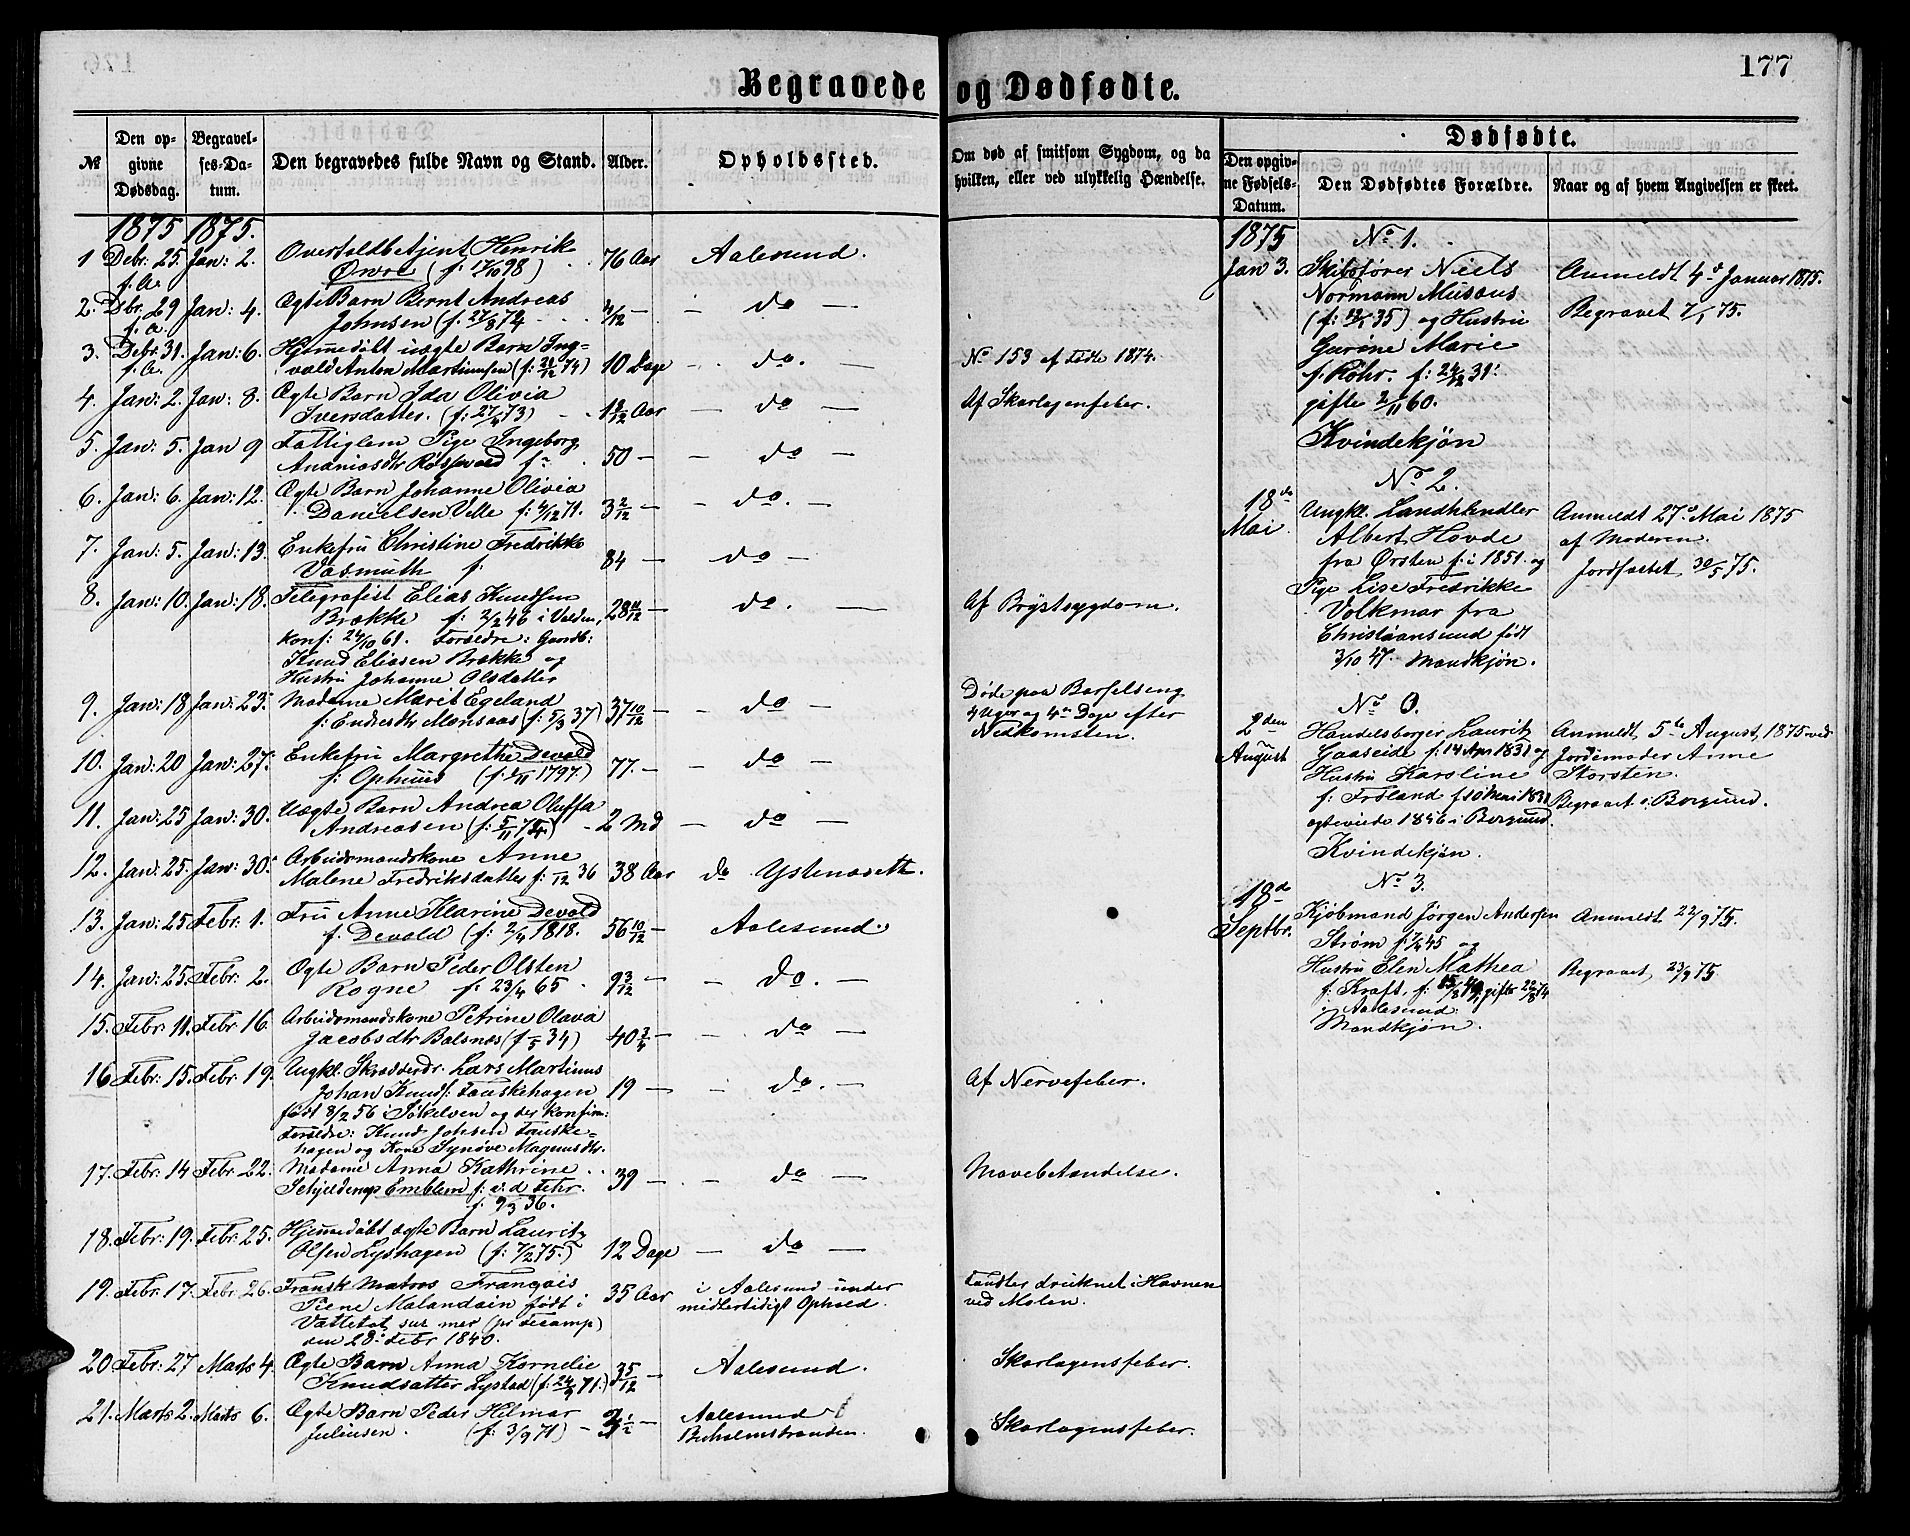 176
177
Begravede og Dødfødte.
№
Den opgivne Dødsdag.
Begravelses-Datum.
Den begravedes fulde Navn og Stand.
Alder.
Opholdssted.
Om død af smitsom Sygdom, og da
hvilken, eller ved ulykkelig Hændelse.
Dødfødte.
Den opgivne Fødsels-Datum.
Den Dødfødtes Forældre.
Naar og af hvem Angivelsen er skeet.
1875 1875.
1 Debr. 25. Jan: 2. Overtoldbetjent Henrik 76 Aar Aalesund.
f. A. (f. 17/10 98)
2. Dbr. 29 Jan: 4. Ægte Barn Bernt Andreas 4/12 — do —
f. a. Johnsen (f. 27/8 74
3. Debr. 31. Jan: 6. Hjemmedøbt uægte Barn Ing-
f. A. vald Anton Martinusen (f: 21/12 74) 10 Dage — do. — No 153 af Fødte 1874.
4. Jan: 2. Jan: 8. Ægte Barn Ida Olivia
Iversdatter. (f: 27/4 73) Aar — do — Af Skarlagensfeber.
5. Jan: 5. Jan 9 Fattiglem Pige Ingeborg
Ananiasdtr 50 — do —
6. Jan: 6. Jan: 12. Ægte Barn Johanne Olivia
Danielsen Velle f: 4/12 71. 3 2/12 — do. —
7. Jan: 5. Jan: 13. Enkefru Christine Fredrikke
Vasmuth f. 84 — do —
8. Jan: 10. Jan: 18. Telegrafist Elias Knudsen
Brække f: 2/2 46 i Volden, 28 11/12 — do. — Af Brystsygdom.
konf: 24/10 61. Forældre: Gaardb:
Knud Eliasen Brække og
Hustru Johanne Olsdatter
9. Jan: 18 Jan: 23. Madame Marit Egeland
f: Endresdtr Monsaas (f: 5/3 37) 37 10/12 — do — Døde paa Barselseng
4 Uger og 4 Dage efter
Nedkomsten.
10. Jan: 20 Jan: 27. Enkefru Margrethe Devold
f: Ophuus (f: 1/11 1797.) 77. — do —
11. Jan: 25 Jan: 30. Uægte Barn Andrea Oluffa
Andreasen (f: 5/11 74) 2 Md — do —
12. Jan: 25. Jan: 30. Arbeidsmandskone Anne
Malene Fredriksdatter f: /12 36 38 Aar do Ystenæsett.
13. Jan: 25 Febr: 1. Fru Anne Klarine Devold
f. Devold (f: 2/4 1818. 56 10/12 — Aalesund.
14. Jan: 25. Febr: 2. Ægte Barn Peder Olsten
Rogne f. 23/4 65 9 3/12 — do. —
15. Febr: 11. Febr: 16. Arbeidsmandskone Petrine Olava
Jacobsdtr Balsnæs (f /5 34) 40 3/4 — do —
16 Febr: 15. Febr: 19. Ungkl. Skrædderdr. Lars Martinus
Johan Knuds: Fauskehagen 19 — do. — Af Nervefeber.
født 8/2 56 i Søkelven og der konfirm:
Forældre: Knud Johsen Fauske-
hagen og Kone Synøve Magnusdtr.
17. Febr: 14 Febr: 22. Madame Anna Kathrine
Schjelderup Emblem f: v. d. Fehr. 39 — do — Mavebetændelse.
f. 9/3 36.
18. Febr: 19. Febr: 25. Hjemmedøbt ægte Barn Lauritz
Olsen Lyshagen (f: 7/2 75.) 12 Dage — do —
19. Febr: 17. Febr: 26. Fransk Matros François 35 Aar i Aalesund under Fandtes druknet i Havnen
Piene Malandain født i midlertidigt Ophold. ved Molen.
Vattetot sur mer (pr Fecamp)
den 28. Febr 1840.
20 Febr: 27 Marts 4. Ægte Barn Anna Kornelie 3 5/12 — Aalesund. Skarlagensfeber.
Knudsatter Lystad (f: 24/9 71.)
21. Marts 2. Marts 6. Ægte Barn Peder Hilmar Aalesund Skarlagensfeber.
Juliussen. (f: 3/9 71) Buholmstranden.
1875 No 1.
Jan 3. Skibsfører Niels Anmeldt 4d Januar 1875.
Normann Musæus Begravet 7/1 75.
(f: 35) og Hustru
Gurine Marie
f. Rohr. f: 24/12 31.
gifte 2/11 60.
Kvindekjøn
No 2.
18de Mai Ungkl. Landhandler Anmeldt 27. Mai 1875
Albert Hovde af Moderen.
fra Ørsten f. i 1851. og Jordfæstet 30/5 75.
Pige Lise Fredrikke
Volkmar fra
Christiansund født
3/10 47. Mandkjøn.
No 0.
2den August Handelsborger Lauritz Anmeldt 5te August, 1875 ved
Gaaseide f: 14 Apr 1831 og Jordemoder Anne
Hustru Karoline Storsten.
f: Frøland f 10 Mai 1831 Begravet i Borgund.
ægteviede 1856 i Borgund.
Kvindekjøn.
No 3.
18d Septbr. Kjøbmand Jørgen Andersen Anmeldt 22/9 75.
Strøm f. 45 og
Hustru Elen Mathea Begravet 23/9 75.
f. Kraft, f: 15/8 gifte 22/8 74
i Aalesund.
Mandkjøn.